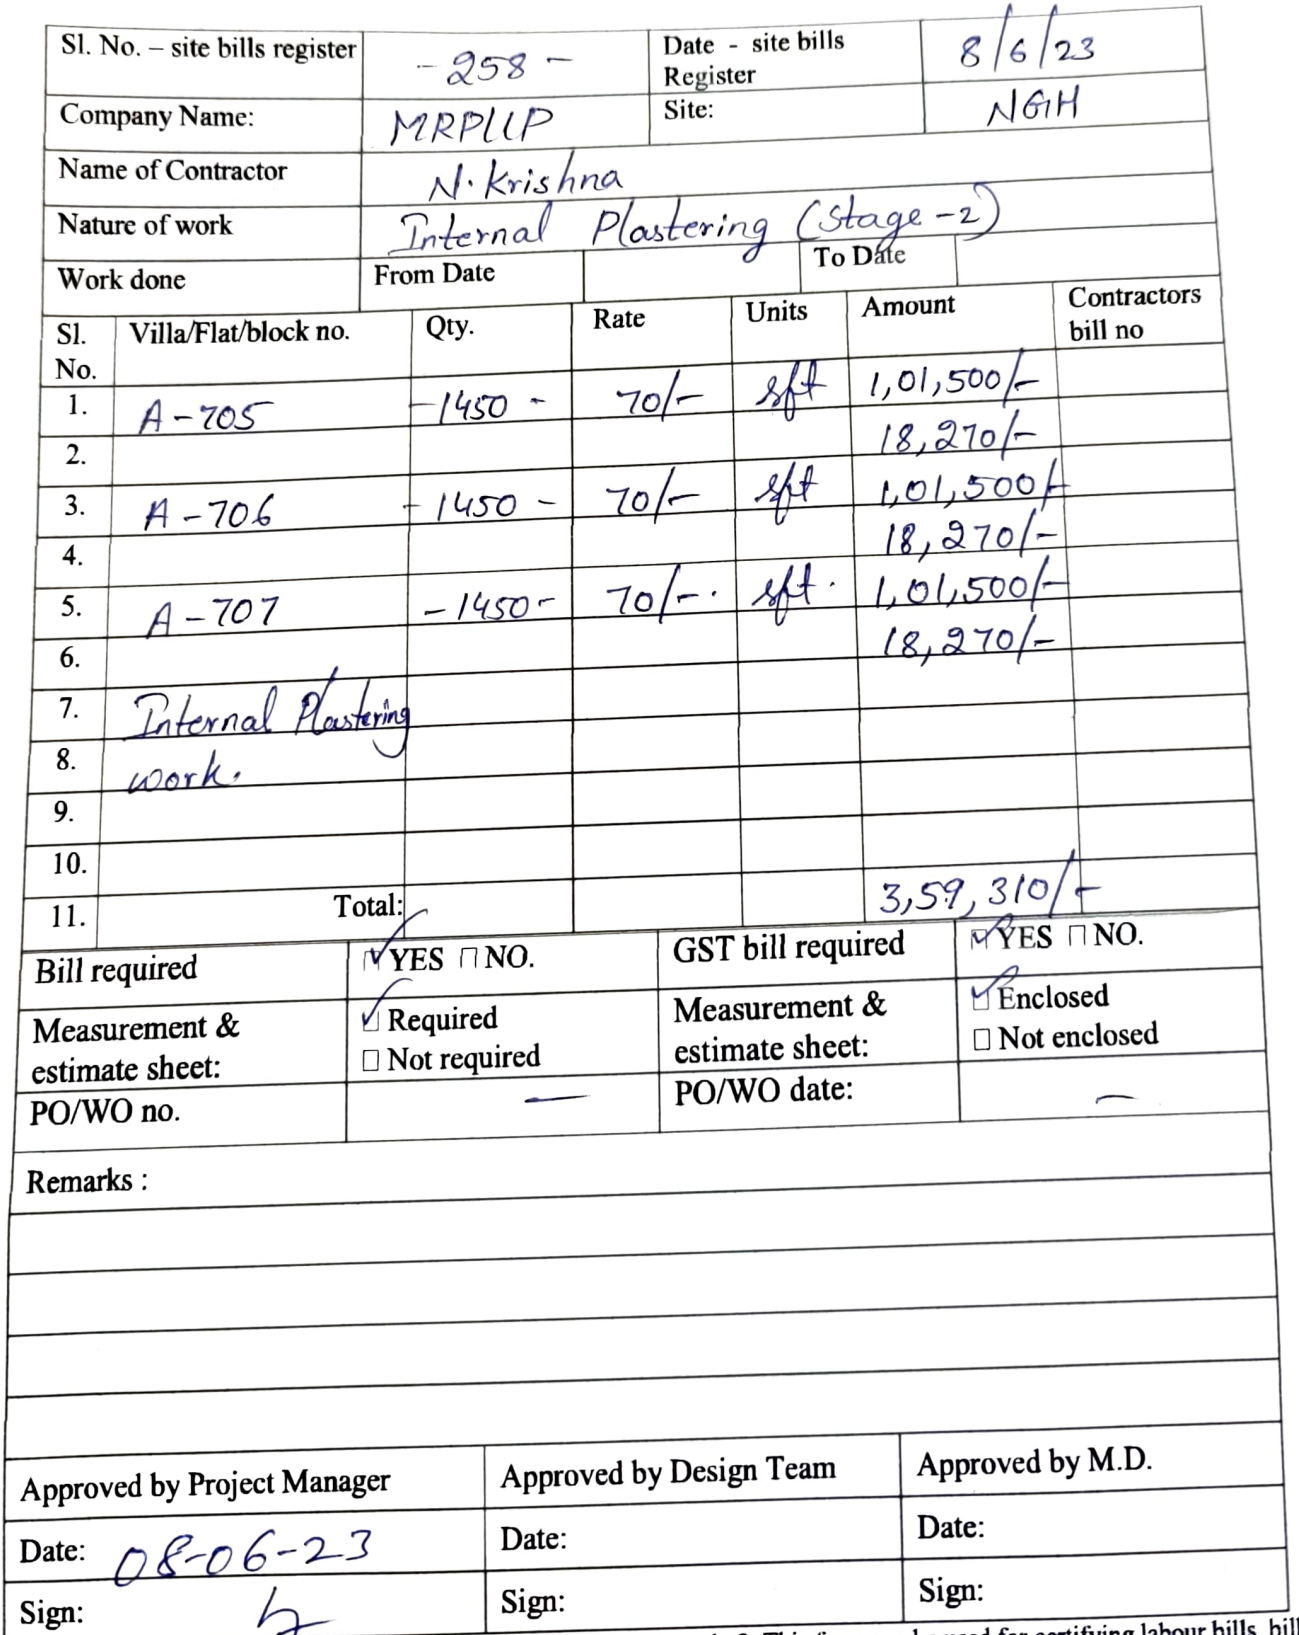 Sl. No. – site bills register -258- Date - site bills Register 8/6/23
Company Name: MRPLLP Site: NGH
Name of Contractor N. Krishna
Nature of work Internal Plastering (Stage-2)
Work done From Date To Date
Sl. No. Villa/Flat/block no. Qty. Rate Units Amount Contractors bill no
1. A-705 -1450- 70/- sft 1,01,500/-
2. 18,270/-
3. A-706 -1450- 70/- sft 1,01,500/-
4. 18,270/-
5. A-707 -1450- 70/-. sft. 1,01,500/-
6. 18,270/-
7. Internal Plastering
8. work.
9.
10.
11. Total: 3,59,310/-
Bill required YES NO. GST bill required YES NO.
Measurement & estimate sheet: Required Not required Measurement & estimate sheet: Enclosed Not enclosed
PO/WO no. — PO/WO date: —
Remarks :
Approved by Project Manager Approved by Design Team Approved by M.D.
Date: 08-06-23 Date: Date:
Sign: Sign: Sign:
labour bills, bill